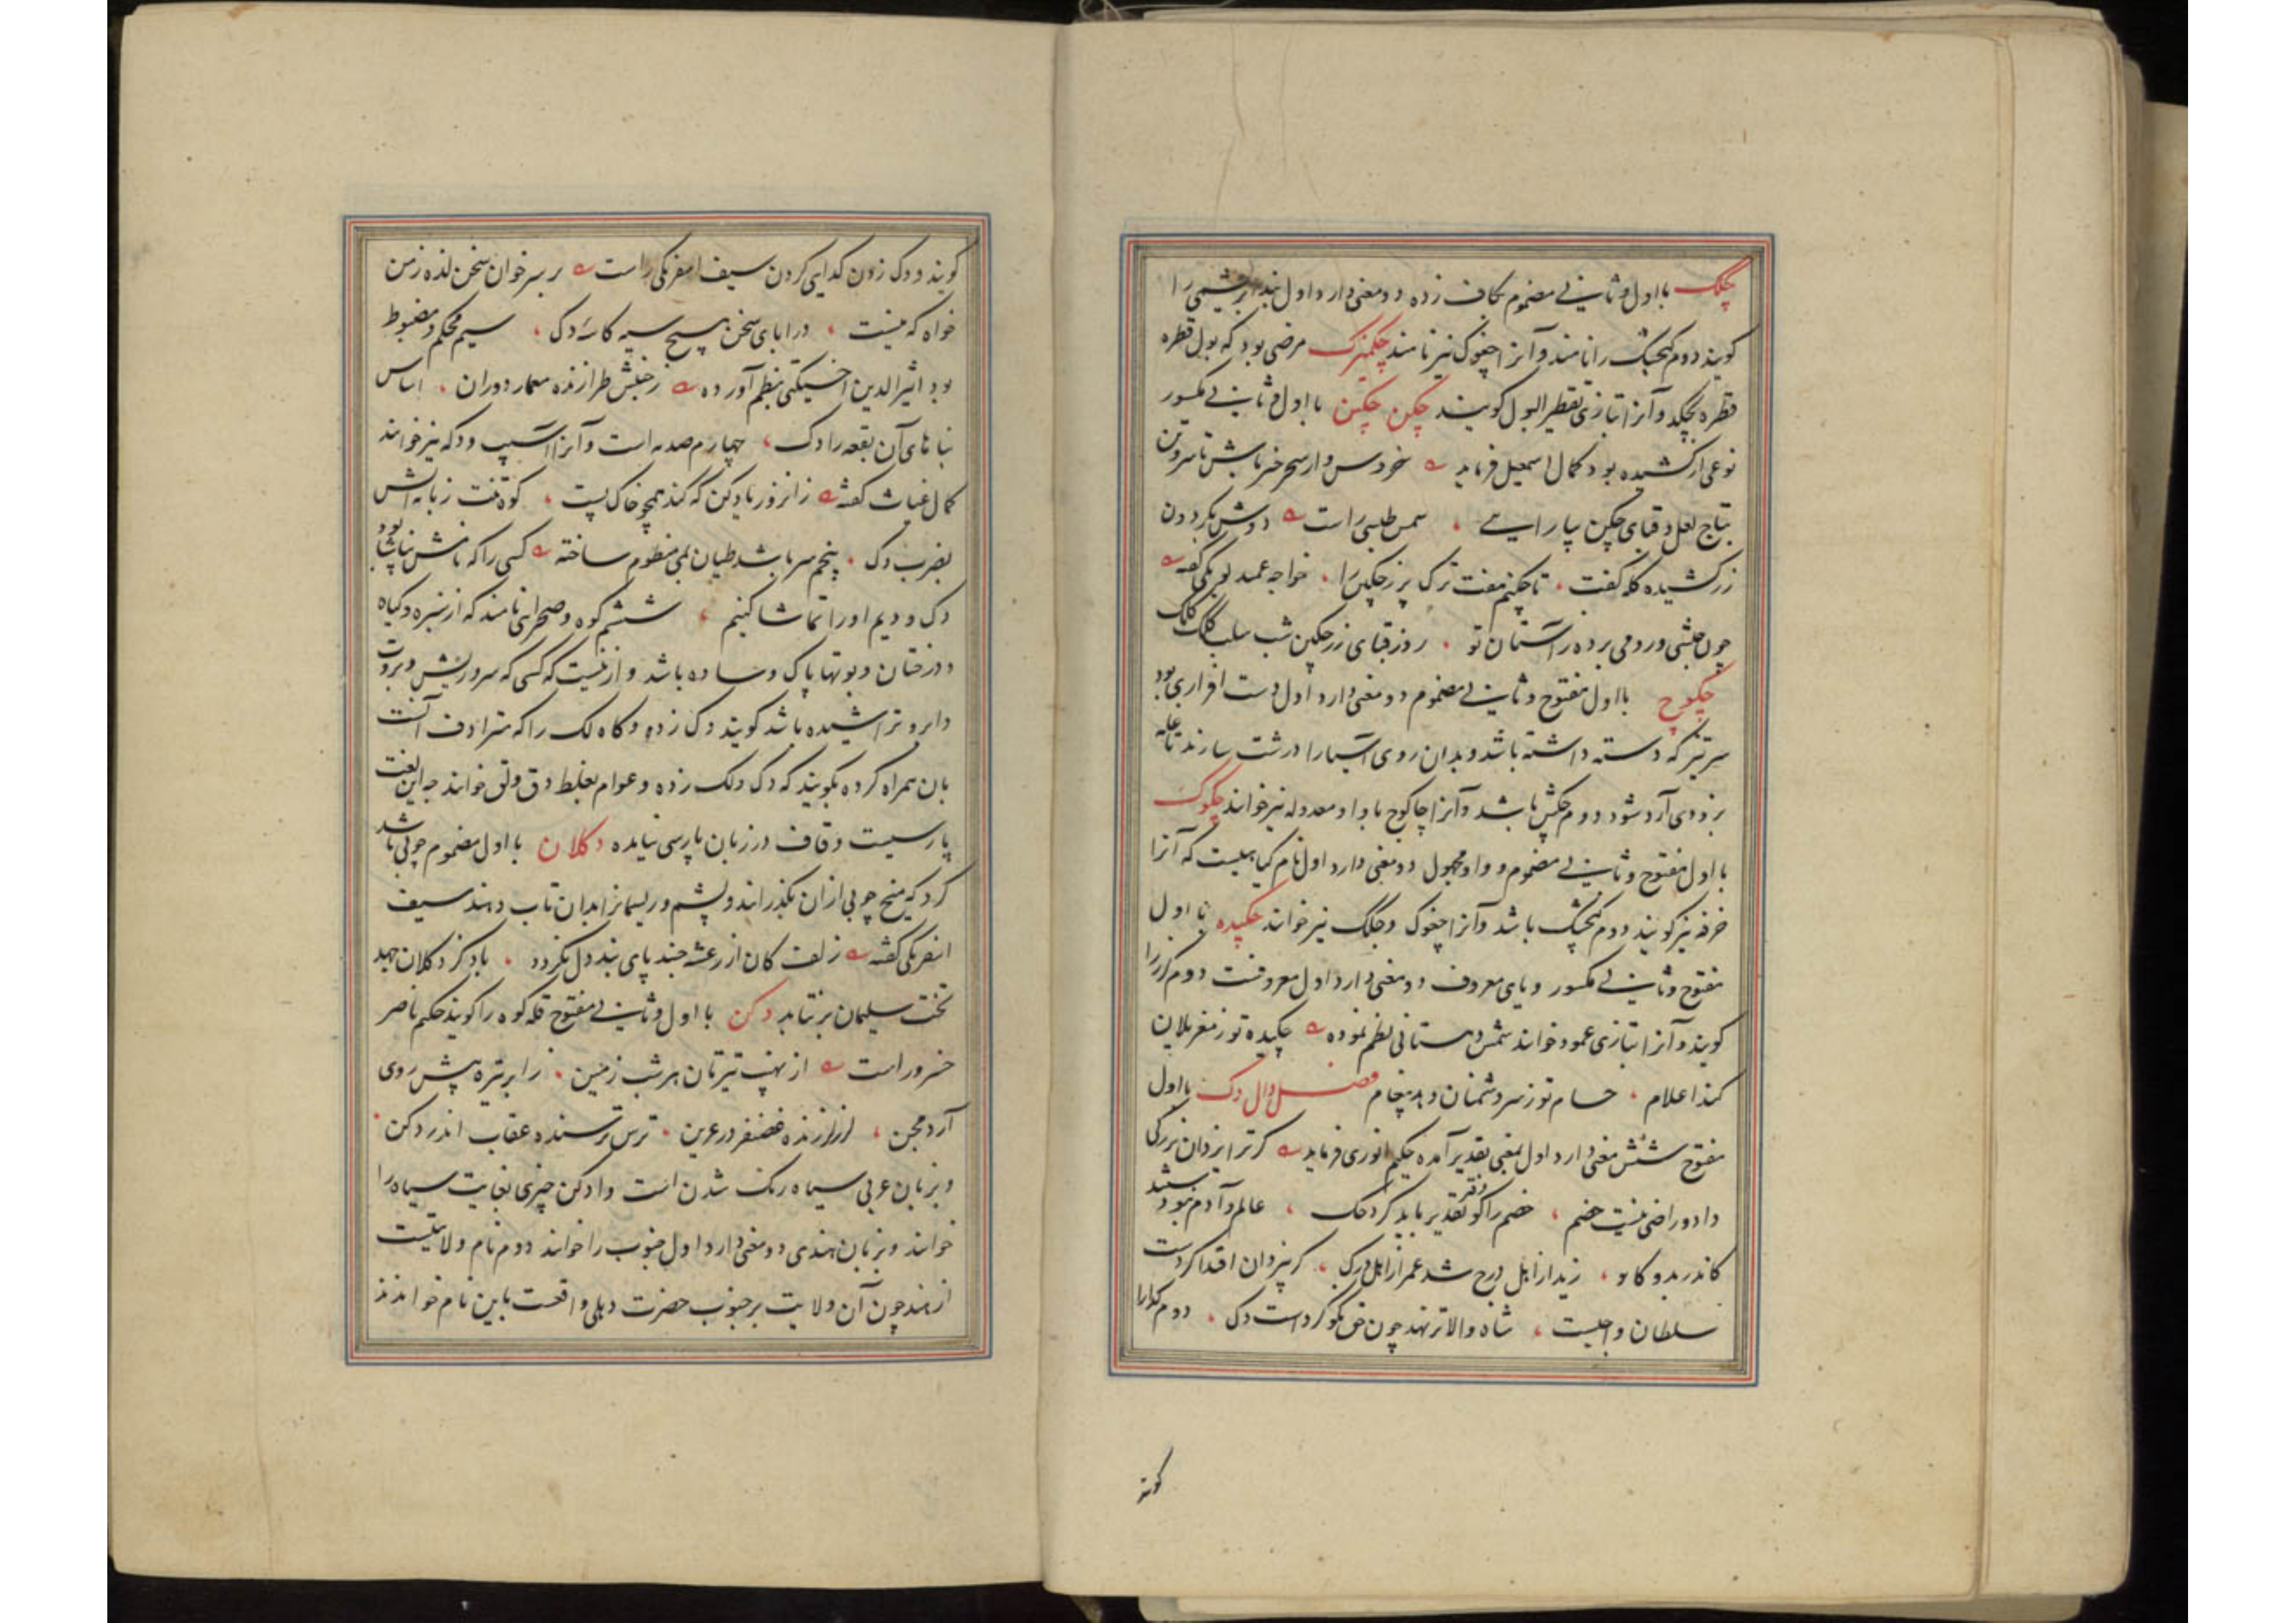 چکک با اول و ثانی مضموم بکاف زده دو معنی دارد اول بند ابریشمی را
کویند دوم کنجشک را نامند و آنرا چغوک نیز نامند چکمیزک مرضی بود که بول قطره
قطره بچکد و آنرا بتازی تقطیر البول کویند چکن چکین با اول و ثانی مکسور
نوعی از کشیده بود کمال اسمعیل فرماید خروس وار سحرخیز باش تا سر و تن
بتاج لعل و قبای چکن بیارایی شمس طبسی راست دوش بکردون
زرکشیده کله کفت تا چکنم مفت ترک پر زر چکن را خواجه عمید لوبکی کفته
چون حبشی و رومی برده بر آستان تو روز قبای زر چکن شب سلب
چکوچ با اول مفتوح و ثانی مضموم دو معنی دارد اول دست افزاری بود
سرتیز که دسته داشته باشد و بدان روی آسیا را درشت سازند تا غله
بزودی آرد شود دوم چکش باشد و آنرا چاکوچ با واو معدوله نیز خوانند چکوک
با اول مفتوح و ثانی مضموم و واو مجهول دو معنی دارد اول نام کیاهیست که آنرا
خرفه نیز کویند دوم کنجشک باشد و آنرا چغوک و چکک نیز خوانند چکیده با اول
مفتوح و ثانی مکسور و یای معروف دو معنی دارد اول معروفست دوم کرز را
کویند و آنرا بتازی عمود خوانند شمس دهستانی نظم نموده چکیده تو ز مغز یلان
کند اعلام حسام تو ز سر دشمنان دهد پیغام فصل دال دک با اول
مفتوح شش معنی دارد اول بمعنی تقدیر آمده حکیم انوری فرماید کر ترا یزدان بزرکی
داد و راضی نیست خصم خصم را کو دفتر تقدیر باید کرد حک عالم و آدم نبودستند
کاندر بدو کار زید از اهل درج شد عمر از اهل درک کر بیزدان اقتدا کردست
سلطان واجبست شاه والا تر نهد چون حق نکو کرد است دک دوم کدا را
کویند
کویند و دک زدن کدایی کردن سیف اسفرنکی راست بر سر خوان سخن لذه ز من
خواه که نیست در ابای سخن هیچ سیه کاسه دک سیم محکم و مضبوط
بود اثیر الدین اخسیکتی بنظم آورده ز خلقش طرازنده معمار دوران اساس
بناهای آن بقعه را دک چهارم صدمه است و آنرا آسیب و دکه نیز خوانند
کمال غیاث کفته زانروز یاد کن که کند همچو خاک پست کوه تنت زبانه آتش
بضرب دک پنجم سر باشد طیان بمی منظوم ساخته کسی را که باشد
دک و دیم او را تماشا کنیم ششم کوه و صحرایی نامند که از سبزه و کیاه
و درختان و بوتها پاک و ساده باشد و ازینست که کسی که سر و ریش و بروت
و ابرو تراشیده باشد کویند دک زده و کاه لک را که مترادف آنست
بان همراه کرده بکویند که دک و لک زده و عوام بغلط دق و لق خوانند چه این لغت
پارسیست و قاف در زبان پارسی نیامده دکلان با اول مضموم چوبی باشد
کرد که میخ چوبی از آن بکذرانند و پشم و ریسمانرا بدان تاب دهند سیف
اسفرنکی کفته زلفت کان از رعشه جنبد پای بند دل نکردد باد کز دکلان جهد
تخت سلیمان برنتابد دکن با اول و ثانی مفتوح قله کوه را کویند حکیم ناصر
خسرو راست از نهیب تیرتان هر شب زمین ز ابر تیره پیش روی
آرد مجن لرز لرزنده غضنفر در عرین ترس ترسنده عقاب اندر دکن
و بزبان عربی سیاه رنک شدن است و ادکن چیزی بغایت سیاه را
خوانند و بزبان هندی دو معنی دارد اول جنوب را خوانند دوم نام ولایتیست
از هند چون آن ولایت بر جنوب حضرت دهلی واقعست باین نام خوانند